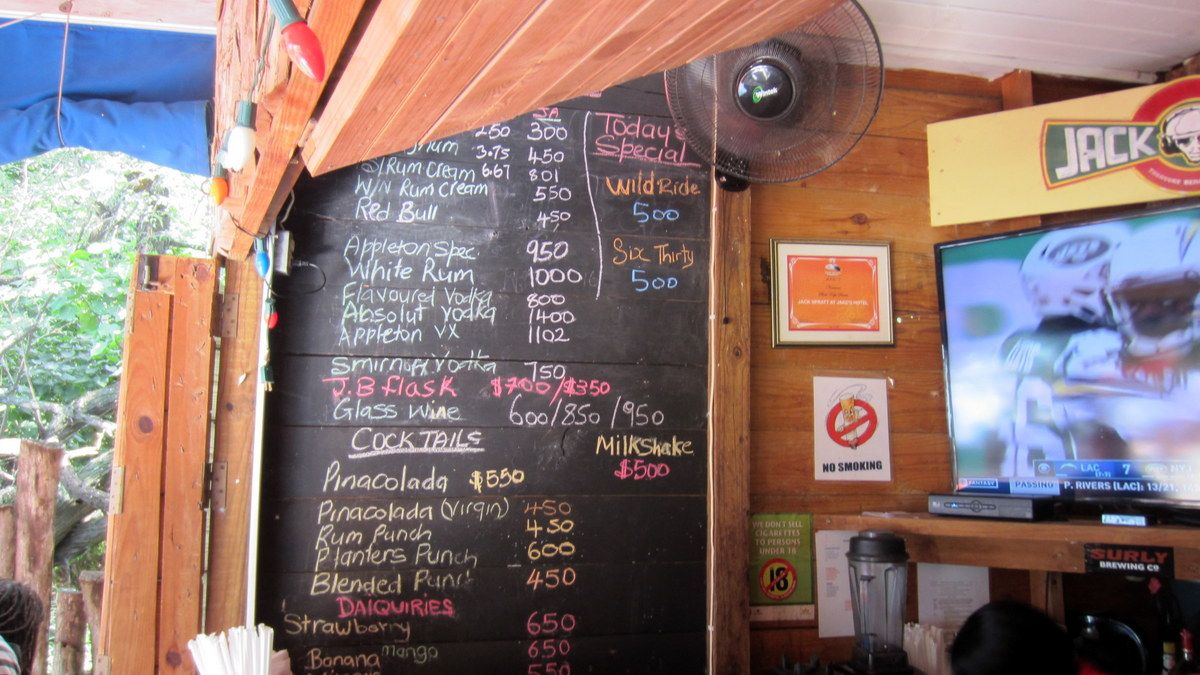 JA
2.50 300
3.75 450
Rum Cream 6.67 801
W/N Rum Cream 550
Red Bull 450
Appleton Spec. 950
White Rum 1000
Flavoured Vodka 800
Absolut Vodka 1400
Appleton VX 1102
Smirnoff Vodka 750
J.B flask $700/$350
Glass Wine 600/850/950
COCKTAILS
Pinacolada $550
Pinacolada (Virgin) 450
Rum Punch 450
Planters Punch 600
Blended Punch 450
DAIQUIRIES
Strawberry 650
Banana mango 650
550
Today's
Special
Wild Ride
500
Six Thirty
500
Milkshake
$500
wintek
JACK
JACK SPRATT AT JAKE'S HOTEL
NO SMOKING
WE DON'T SELL
CIGARETTES
TO PERSONS
UNDER 18
18
JETS
LAC 7
FANTASY PASSING P. RIVERS (LAC): 13/21,
SURLY
BREWING CO.